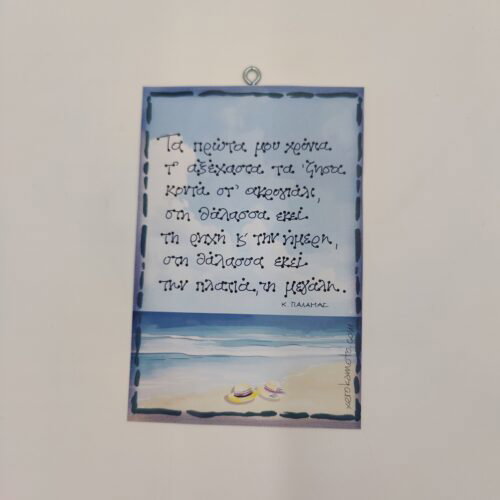 Τα πρώτα μου χρόνια
τ' αξέχαστα τα 'ζησα
κοντά στ' ακρογιάλι,
στη θάλασσα εκεί
τη ρηχή & την ήμερη,
στη θάλασσα εκεί
την πλατιά, τη μεγάλη.
Κ. ΠΑΛΑΜΑΣ
xerokamoto.com